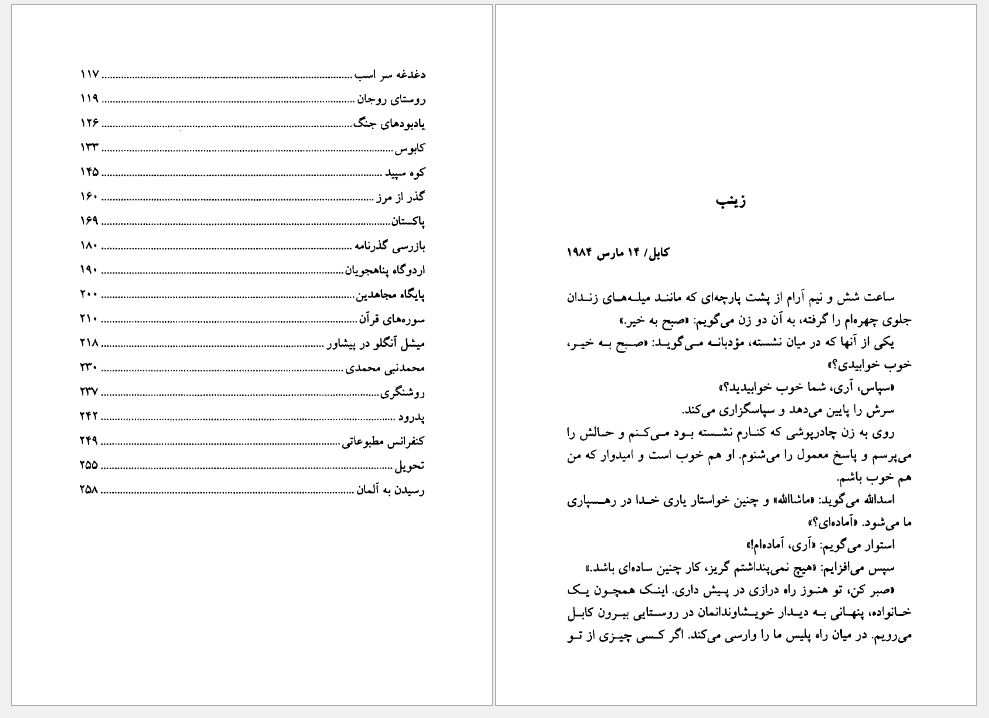 دغدغه سر اسب ........ ۱۱۷
روستای روجان ........ ۱۱۹
یادبودهای جنگ ........ ۱۲۶
کابوس ........ ۱۳۳
کوه سپید ........ ۱۴۵
گذر از مرز ........ ۱۶۰
پاکستان ........ ۱۶۹
بازرسی گذرنامه ........ ۱۸۰
اردوگاه پناهجویان ........ ۱۹۰
پایگاه مجاهدین ........ ۲۰۰
سوره‌های قرآن ........ ۲۱۰
میشل آنگلو در پیشاور ........ ۲۱۸
محمدنبی محمدی ........ ۲۳۰
روشنگری ........ ۲۳۷
پدرود ........ ۲۴۲
کنفرانس مطبوعاتی ........ ۲۴۹
تحویل ........ ۲۵۵
رسیدن به آلمان ........ ۲۵۸
زینب
کابل/ ۱۴ مارس ۱۹۸۴
ساعت شش و نیم آرام از پشت پارچه‌ای که مانند میله‌های زندان
جلوی چهره‌ام را گرفته، به آن دو زن می‌گویم: «صبح به خیر.»
یکی از آنها که در میان نشسته، مؤدبانه می‌گوید: «صبح به خیر،
خوب خوابیدی؟»
«سپاس، آری، شما خوب خوابیدید؟»
سرش را پایین می‌دهد و سپاسگزاری می‌کند.
روی به زن چادرپوشی که کنارم نشسته بود می‌کنم و حالش را
می‌پرسم و پاسخ معمول را می‌شنوم. او هم خوب است و امیدوار که من
هم خوب باشم.
اسدالله می‌گوید: «ماشاالله» و چنین خواستار یاری خدا در رهسپاری
ما می‌شود. «آماده‌ای؟»
استوار می‌گویم: «آری، آماده‌ام!»
سپس می‌افزایم: «هیچ نمی‌پنداشتم گریز، کار چنین ساده‌ای باشد.»
«صبر کن، تو هنوز راه درازی در پیش داری. اینک همچون یک
خانواده، پنهانی به دیدار خویشاوندانمان در روستایی بیرون کابل
می‌رویم. در میان راه پلیس ما را وارسی می‌کند. اگر کسی چیزی از تو